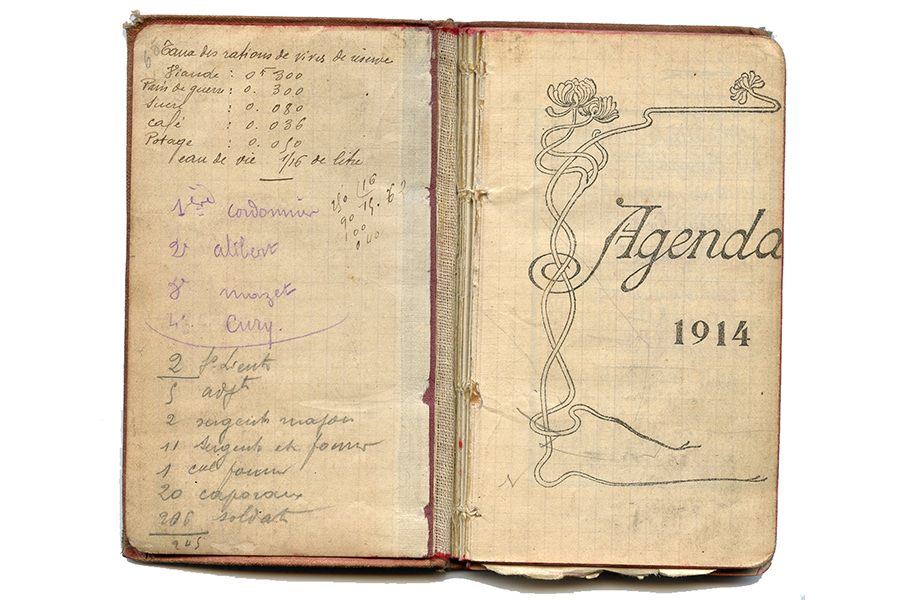 Taux des rations de vives de réserve
Viande : 0 k 300
Pain de guerre : 0. 300
Sucre : 0. 080
Café : 0. 036
Potage : 0. 050
eau de vie 1/16 de litre
1ère cordonnier
2e alibert
3e mazet
4e Cury.
2 s/Lieut
5 adjt
2 sergents major
11 sergents et fourrier
1 cal fourrier
20 caporaux
206 soldats
245
Agenda
1914